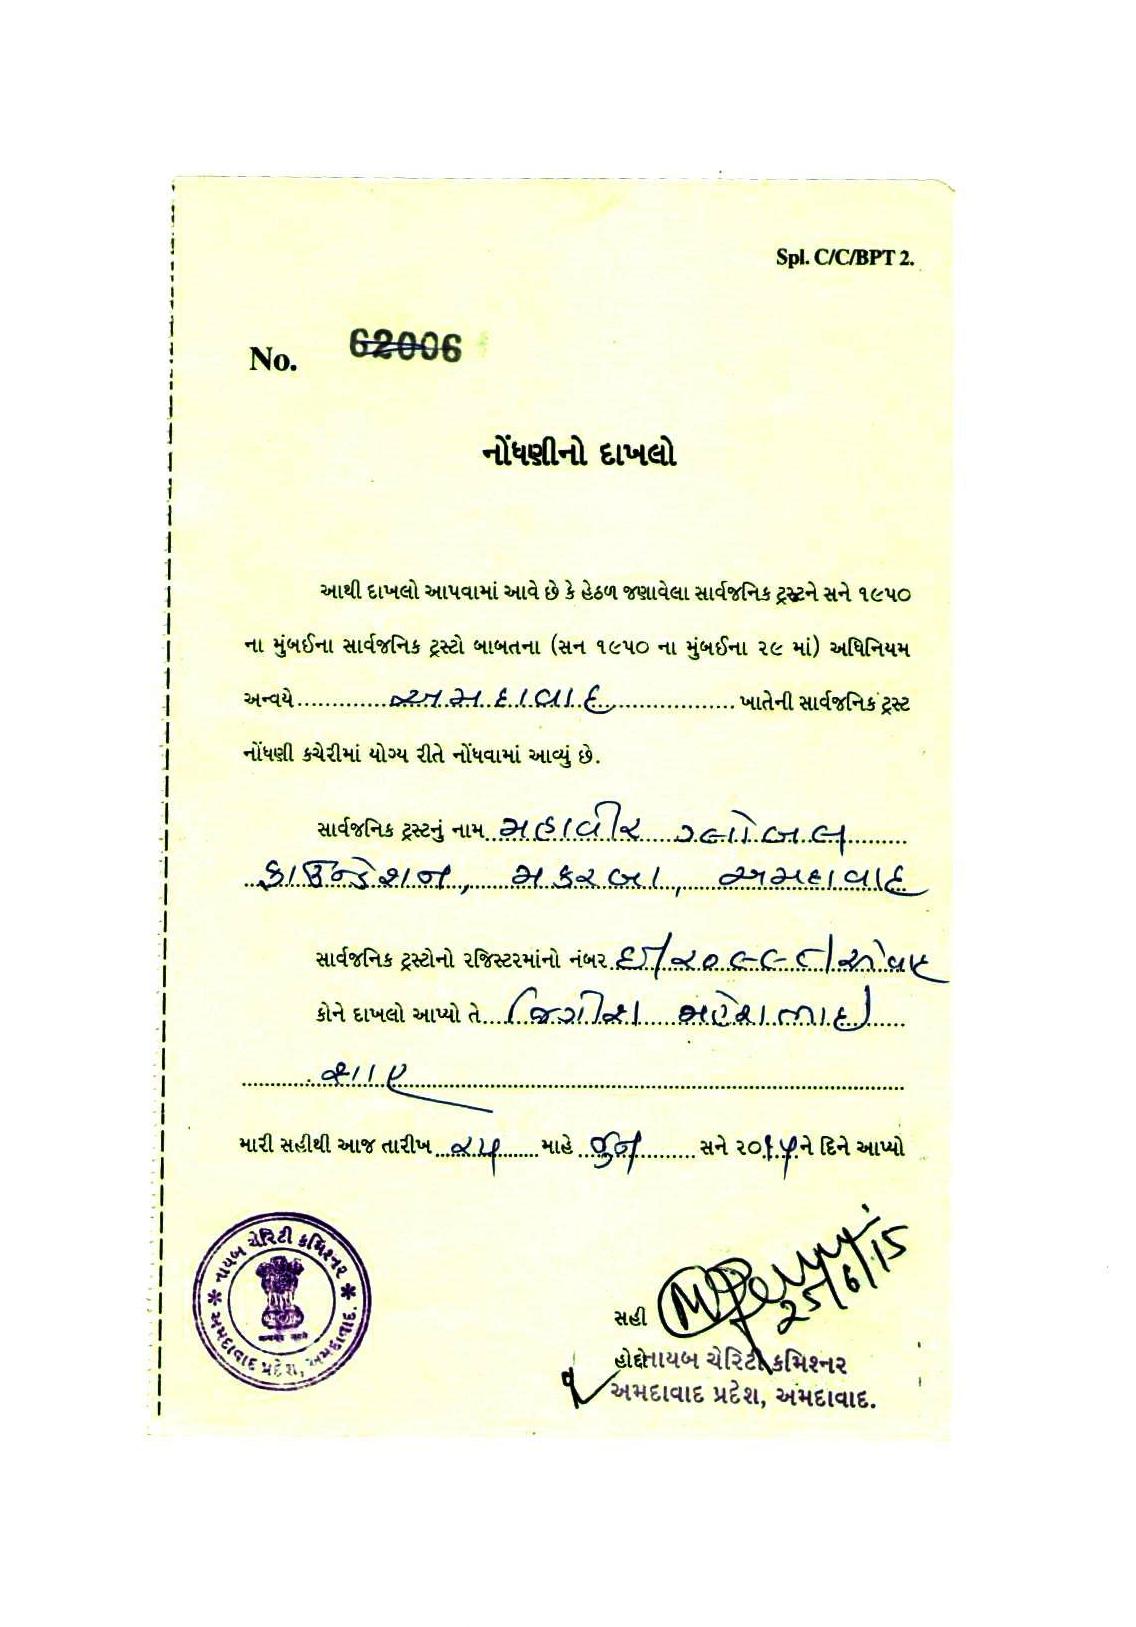 Spl. C/C/BPT 2.
No. 62006
નોંધણીનો દાખલો
આથી દાખલો આપવામાં આવે છે કે હેઠળ જણાવેલા સાર્વજનિક ટ્રસ્ટને સને ૧૯૫૦
ના મુંબઈના સાર્વજનિક ટ્રસ્ટો બાબતના (સન ૧૯૫૦ ના મુંબઈના ૨૯ માં) અધિનિયમ
અન્વયે અમદાવાદ ખાતેની સાર્વજનિક ટ્રસ્ટ
નોંધણી કચેરીમાં યોગ્ય રીતે નોંધવામાં આવ્યું છે.
સાર્વજનિક ટ્રસ્ટનું નામ મહાવીર ગ્લોબલ
ફાઉન્ડેશન, મકરબા, અમદાવાદ
સાર્વજનિક ટ્રસ્ટોનો રજિસ્ટરમાંનો નંબર
કોને દાખલો આપ્યો તે જિગીશ મહેશભાઈ
શાહ
મારી સહીથી આજ તારીખ ૨૫ માહે જુન સને ૨૦૧૫ ને દિને આપ્યો
નાયબ ચેરિટી કમિશ્નર
અમદાવાદ પ્રદેશ, અમદાવાદ.
25/6/15
સહી
હોદ્દો નાયબ ચેરિટી કમિશ્નર
અમદાવાદ પ્રદેશ, અમદાવાદ.